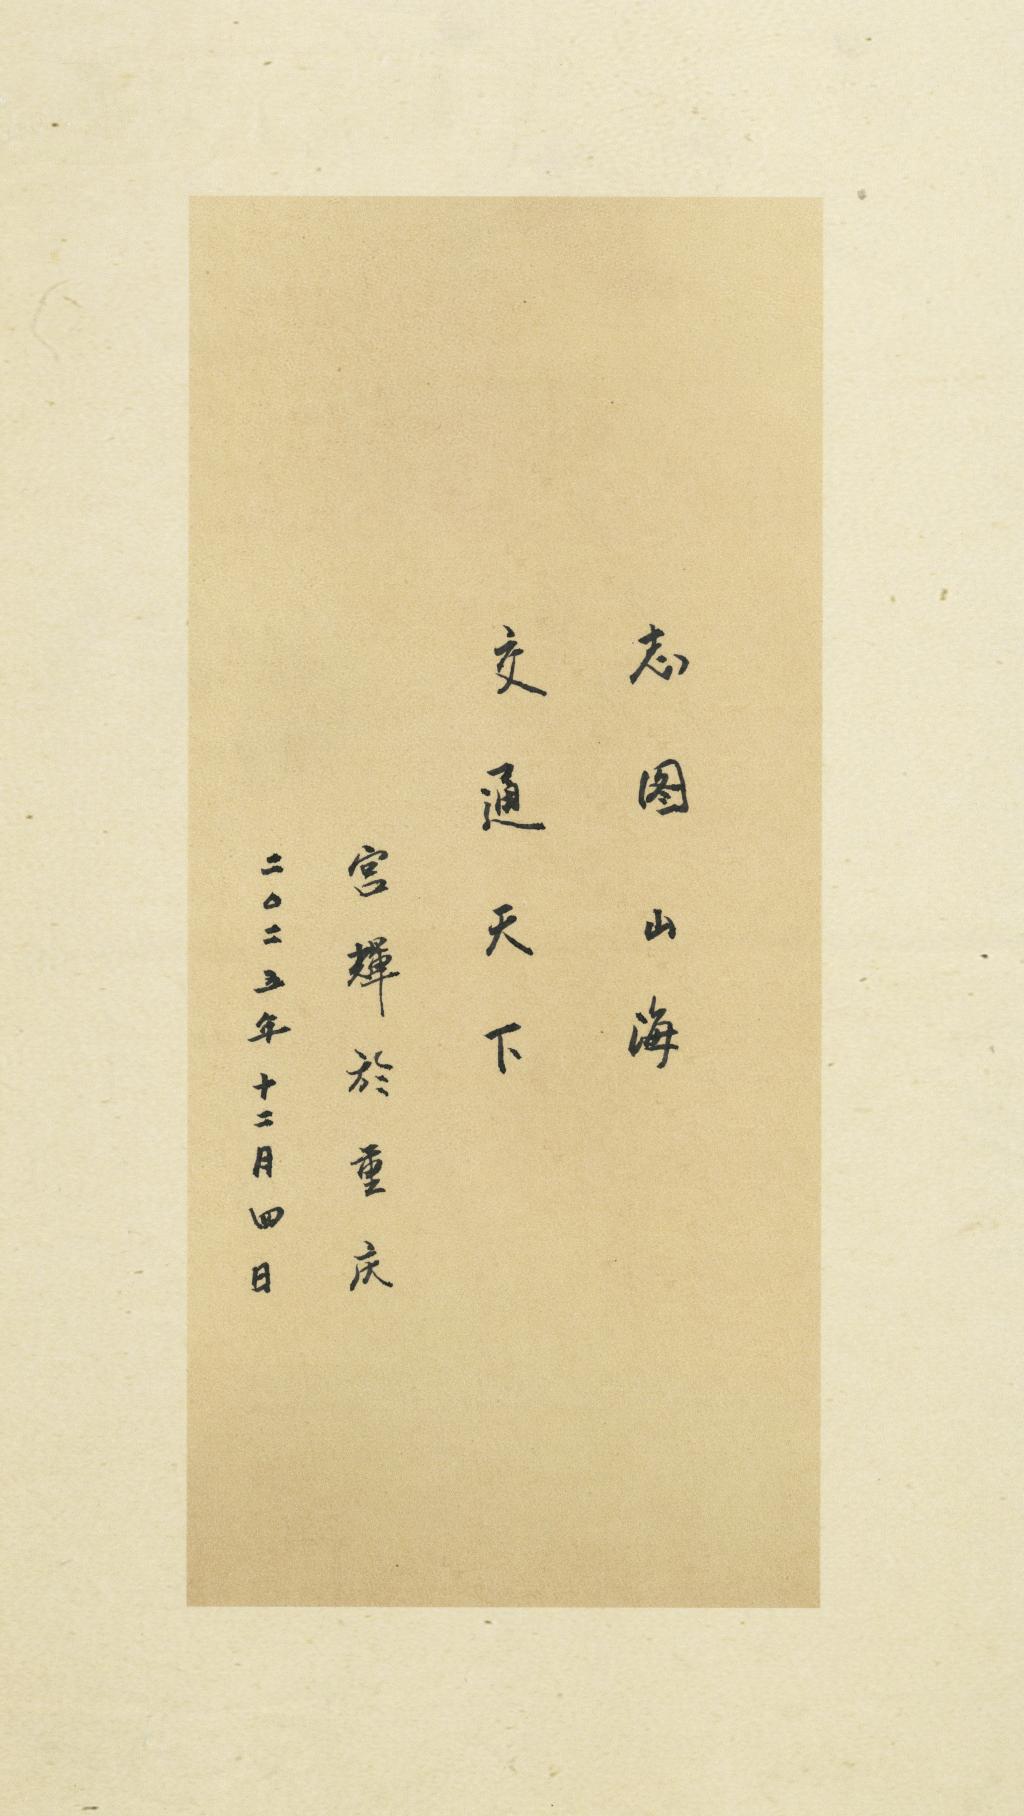 志图山海
交通天下
宫輝於重庆
二〇二五年十二月四日